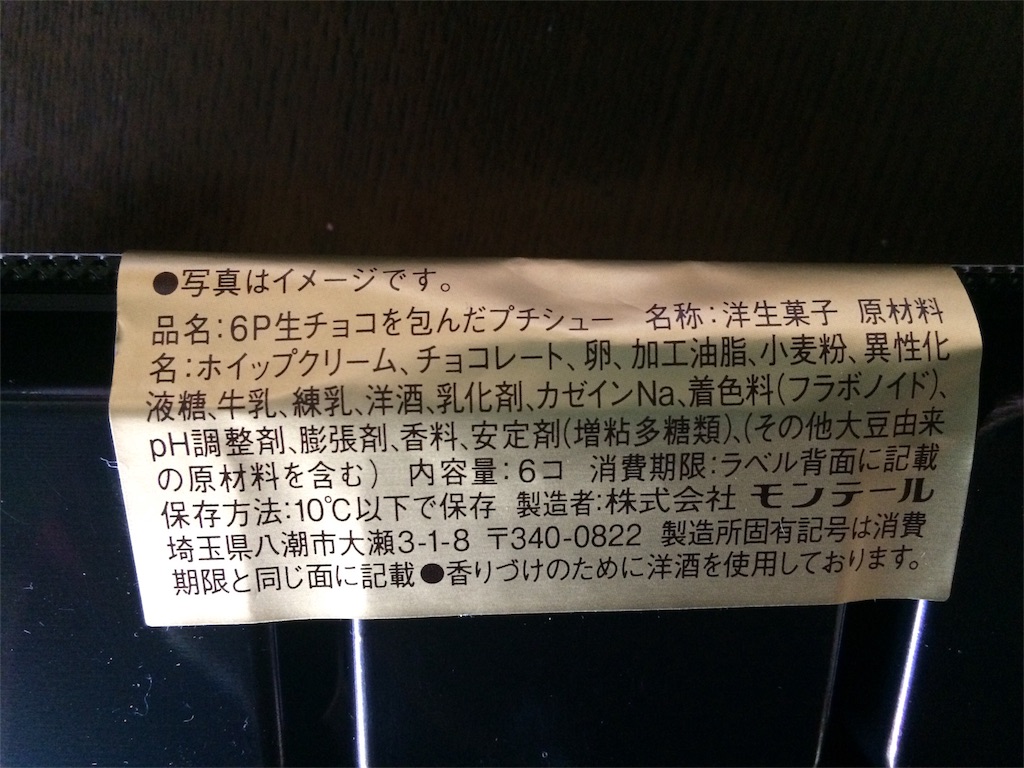 ●写真はイメージです。
品名:6P生チョコを包んだプチシュー 名称:洋生菓子 原材料
名:ホイップクリーム、チョコレート、卵、加工油脂、小麦粉、異性化
液糖、牛乳、練乳、洋酒、乳化剤、カゼインNa、着色料(フラボノイド)、
pH調整剤、膨張剤、香料、安定剤(増粘多糖類)、(その他大豆由来
の原材料を含む) 内容量:6コ 消費期限:ラベル背面に記載
保存方法:10℃以下で保存 製造者:株式会社 モンテール
埼玉県八潮市大瀬3-1-8 〒340-0822 製造所固有記号は消費
期限と同じ面に記載●香りづけのために洋酒を使用しております。